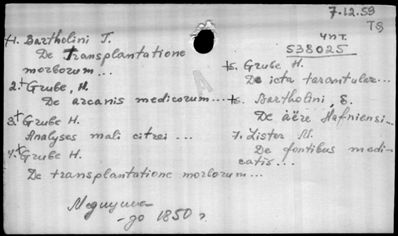 7.12.59
TS
Чит.
538025
+1. Bartholini T.
De transplantatione
morborum...
2+ Grube, H.
De arcanis medicorum...
3+ Grube H.
Analyses mali citrei ...
4+ Grube H.
De transplantatione morborum...
+5. Grube H.
De ictu tarantulae...
+6. Bartholini, E.
De aëre Hafniensi...
7. Lister M.
De fontibus medi-
catis...
Медицина
- до 1850 г.